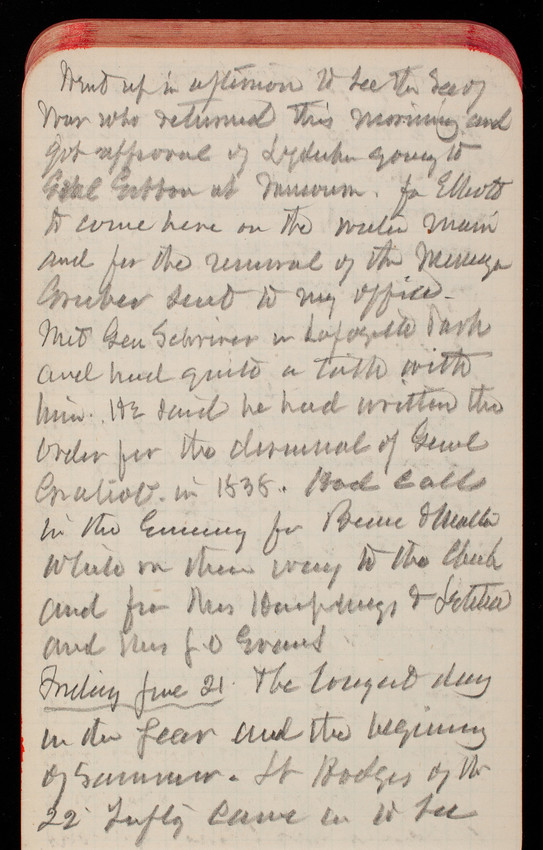 Went up in afternoon to see the Secy
War who returned this morning and
got approval of going to
Genl Gibbon at Vancouver. for Elliott
to come here on the water main
and for the removal of the
sent to my office -
Met Gen Schriver in Lafayette Park
and had quite a talk with
him. He said he had written the
order for the dismissal of Genl
Gratiot. in 1838. Had call
in the Evening for
while on their way to the Club
and from Mrs Humphreys & Letitia
and Mrs J. O Evans
Friday June 21. The longest day
in the year and the beginning
of Summer. Lt Hodges of the
22 Infty came in to see